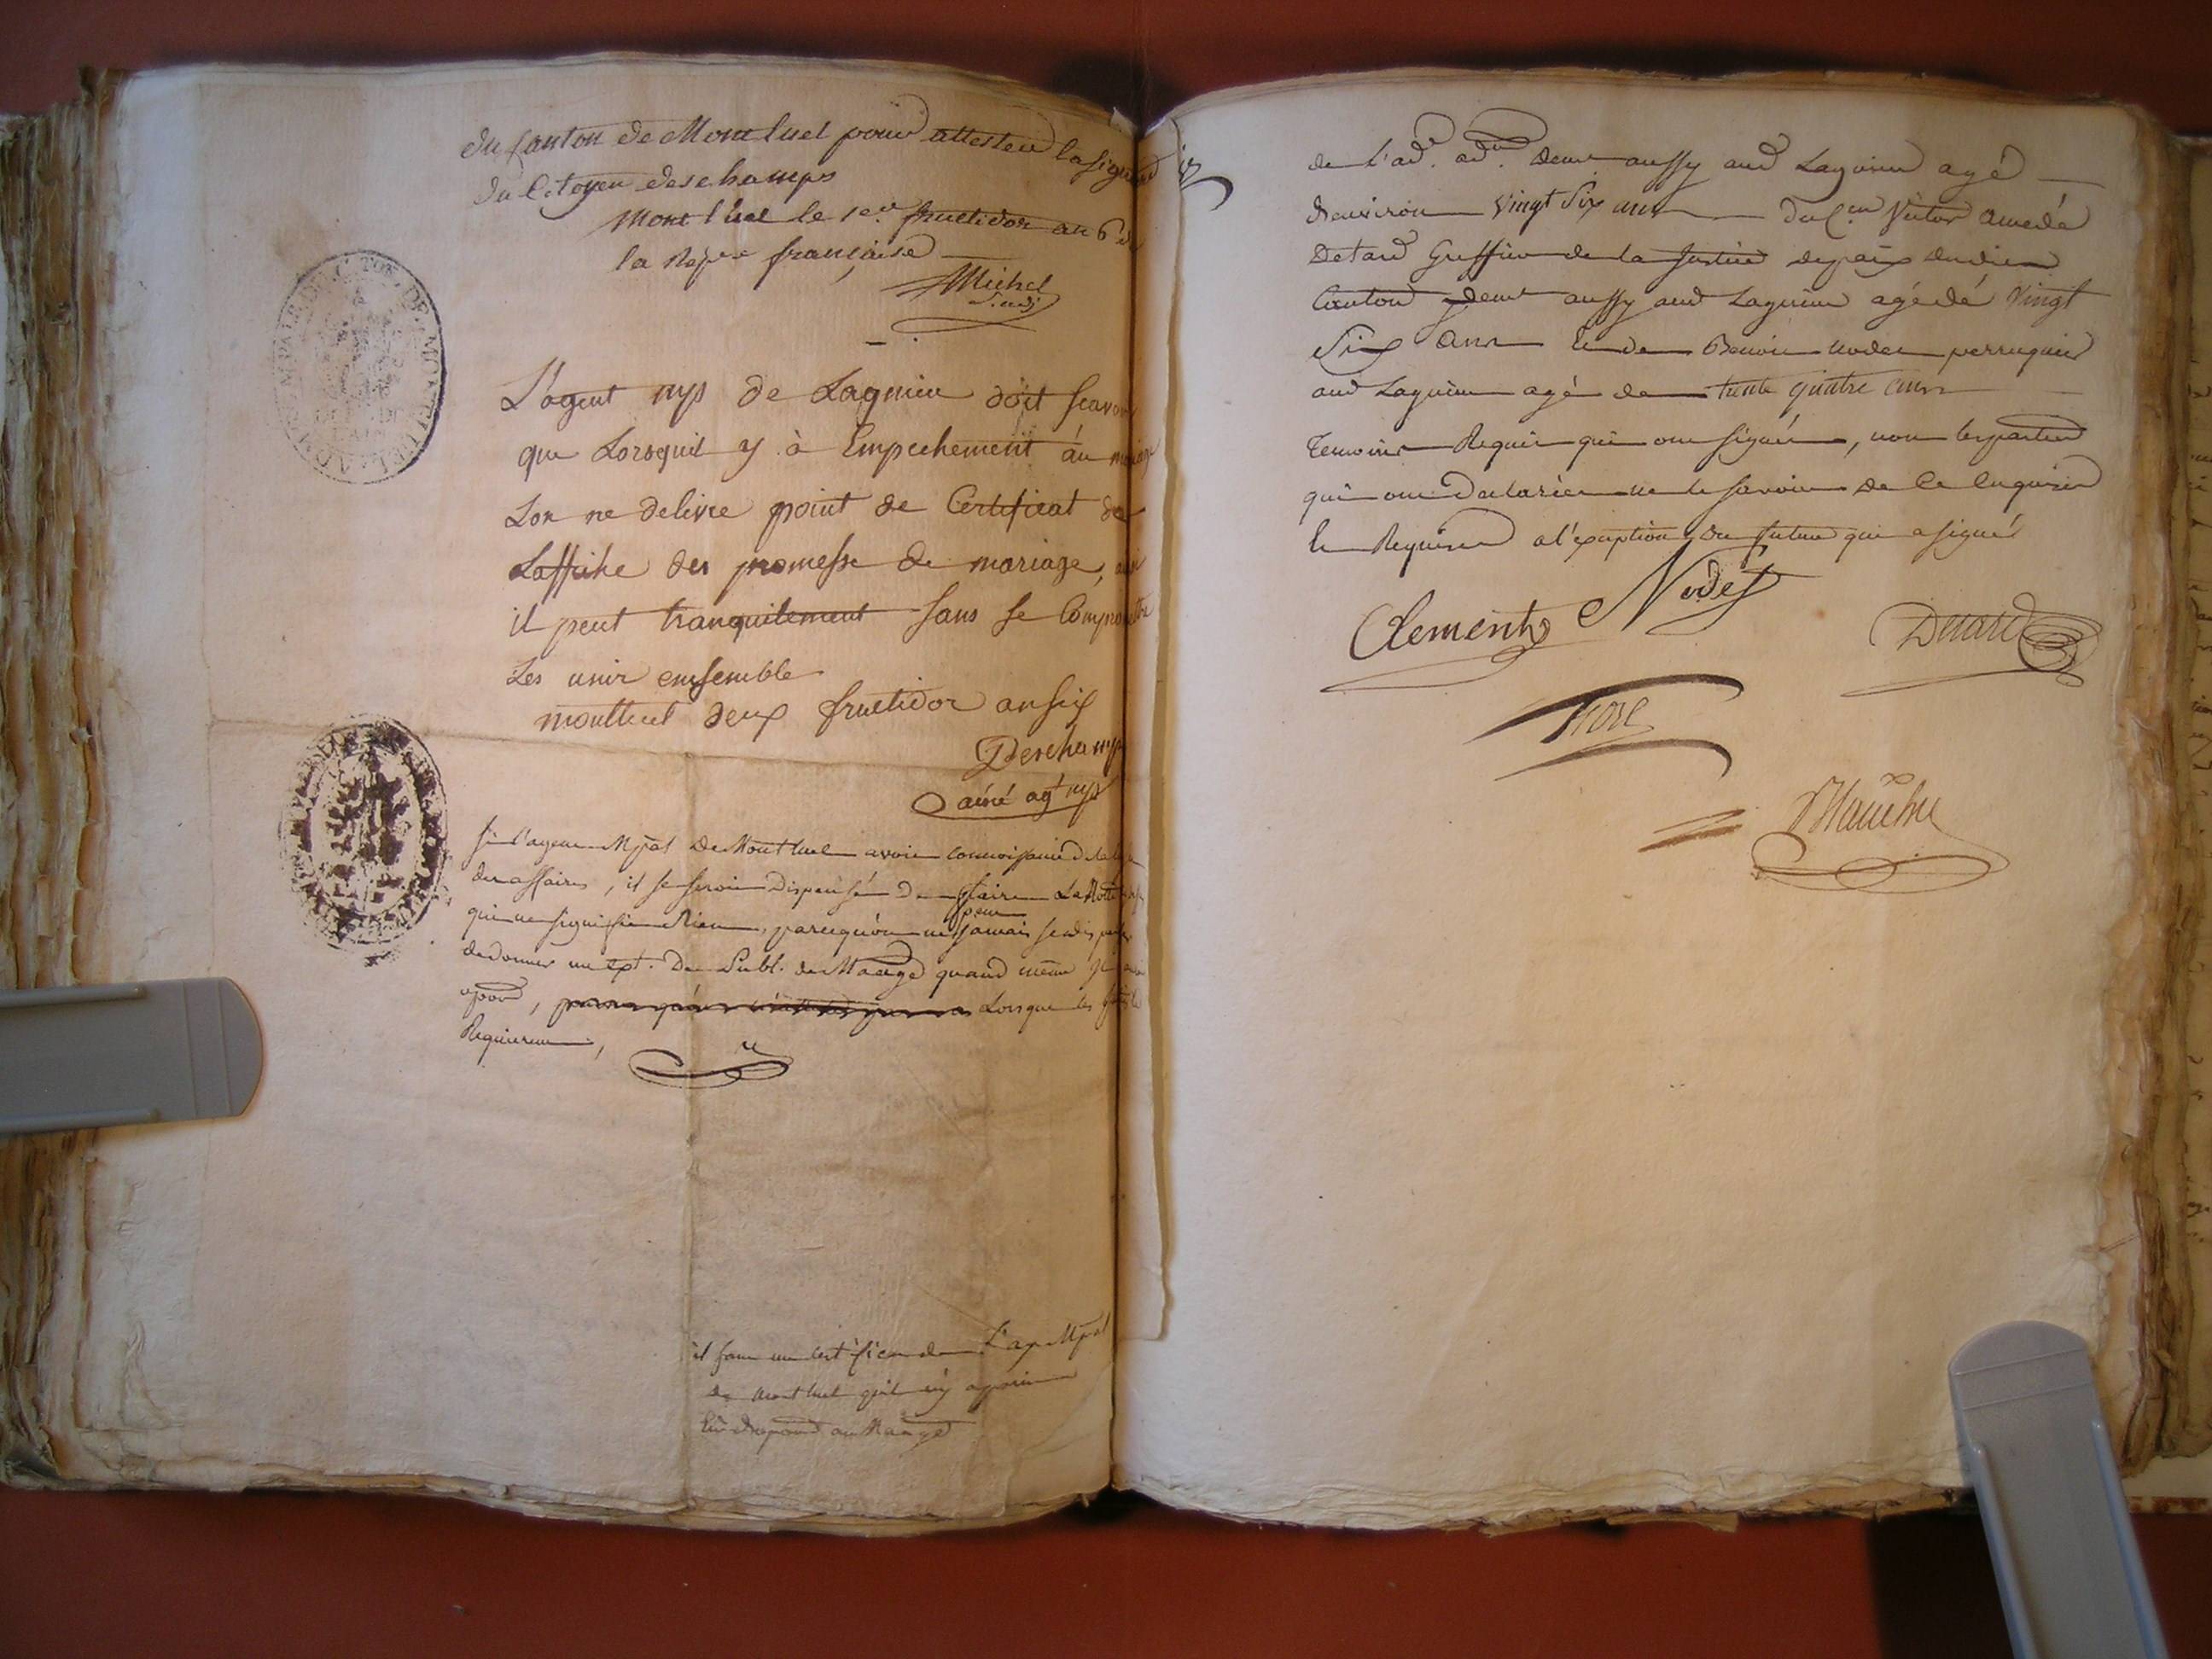 du Canton de Montluel pour attester la signature
du Citoyen deschamps
Montluel le 1er fructidor an 6 de
la Répue française
Michel
L'agent mpl de Lagnieu doit scavoir
que Lorsquil y à Empechement áu mariage
Lon ne delivre point de Certificat de
Laffiche des promesse de mariage,
il peut tranquilement sans se Comprometre
Les unir ensemble
montluel deux fructidor an six
Deschamps
ainé agt mpl
Si l'agent Mpal De Montluel avoit connoissance
des affaires, il se seroit Dispensé De faire La Notte
qui ne signifie Rien, parcequ'on ne peut jamais se dispenser
de donner un ext. De Publ. de Mariage quand même
Lorsque les
Requierent,
il faut un certificat de L'ag. Mpal
de montluel qu'il n'y a point
au Mariage
de L'ad. demt aussy aud Lagnieu agé
denviron vingt Six ans du Cen Victor amedé
Detard Greffier de la Justice de paix dudit
Canton demt aussy aud Lagnieu agé dé Vingt
Six ans et de Benoit Nodet perruquier
aud Lagnieu agé de trente quatre ans
Temoins Requis qui ont signés, non les parties
qui ont Declarées ne le savoir de Ce Enquises
et Requises a l'exception du futur qui a signé
Clement Nodet
Detard